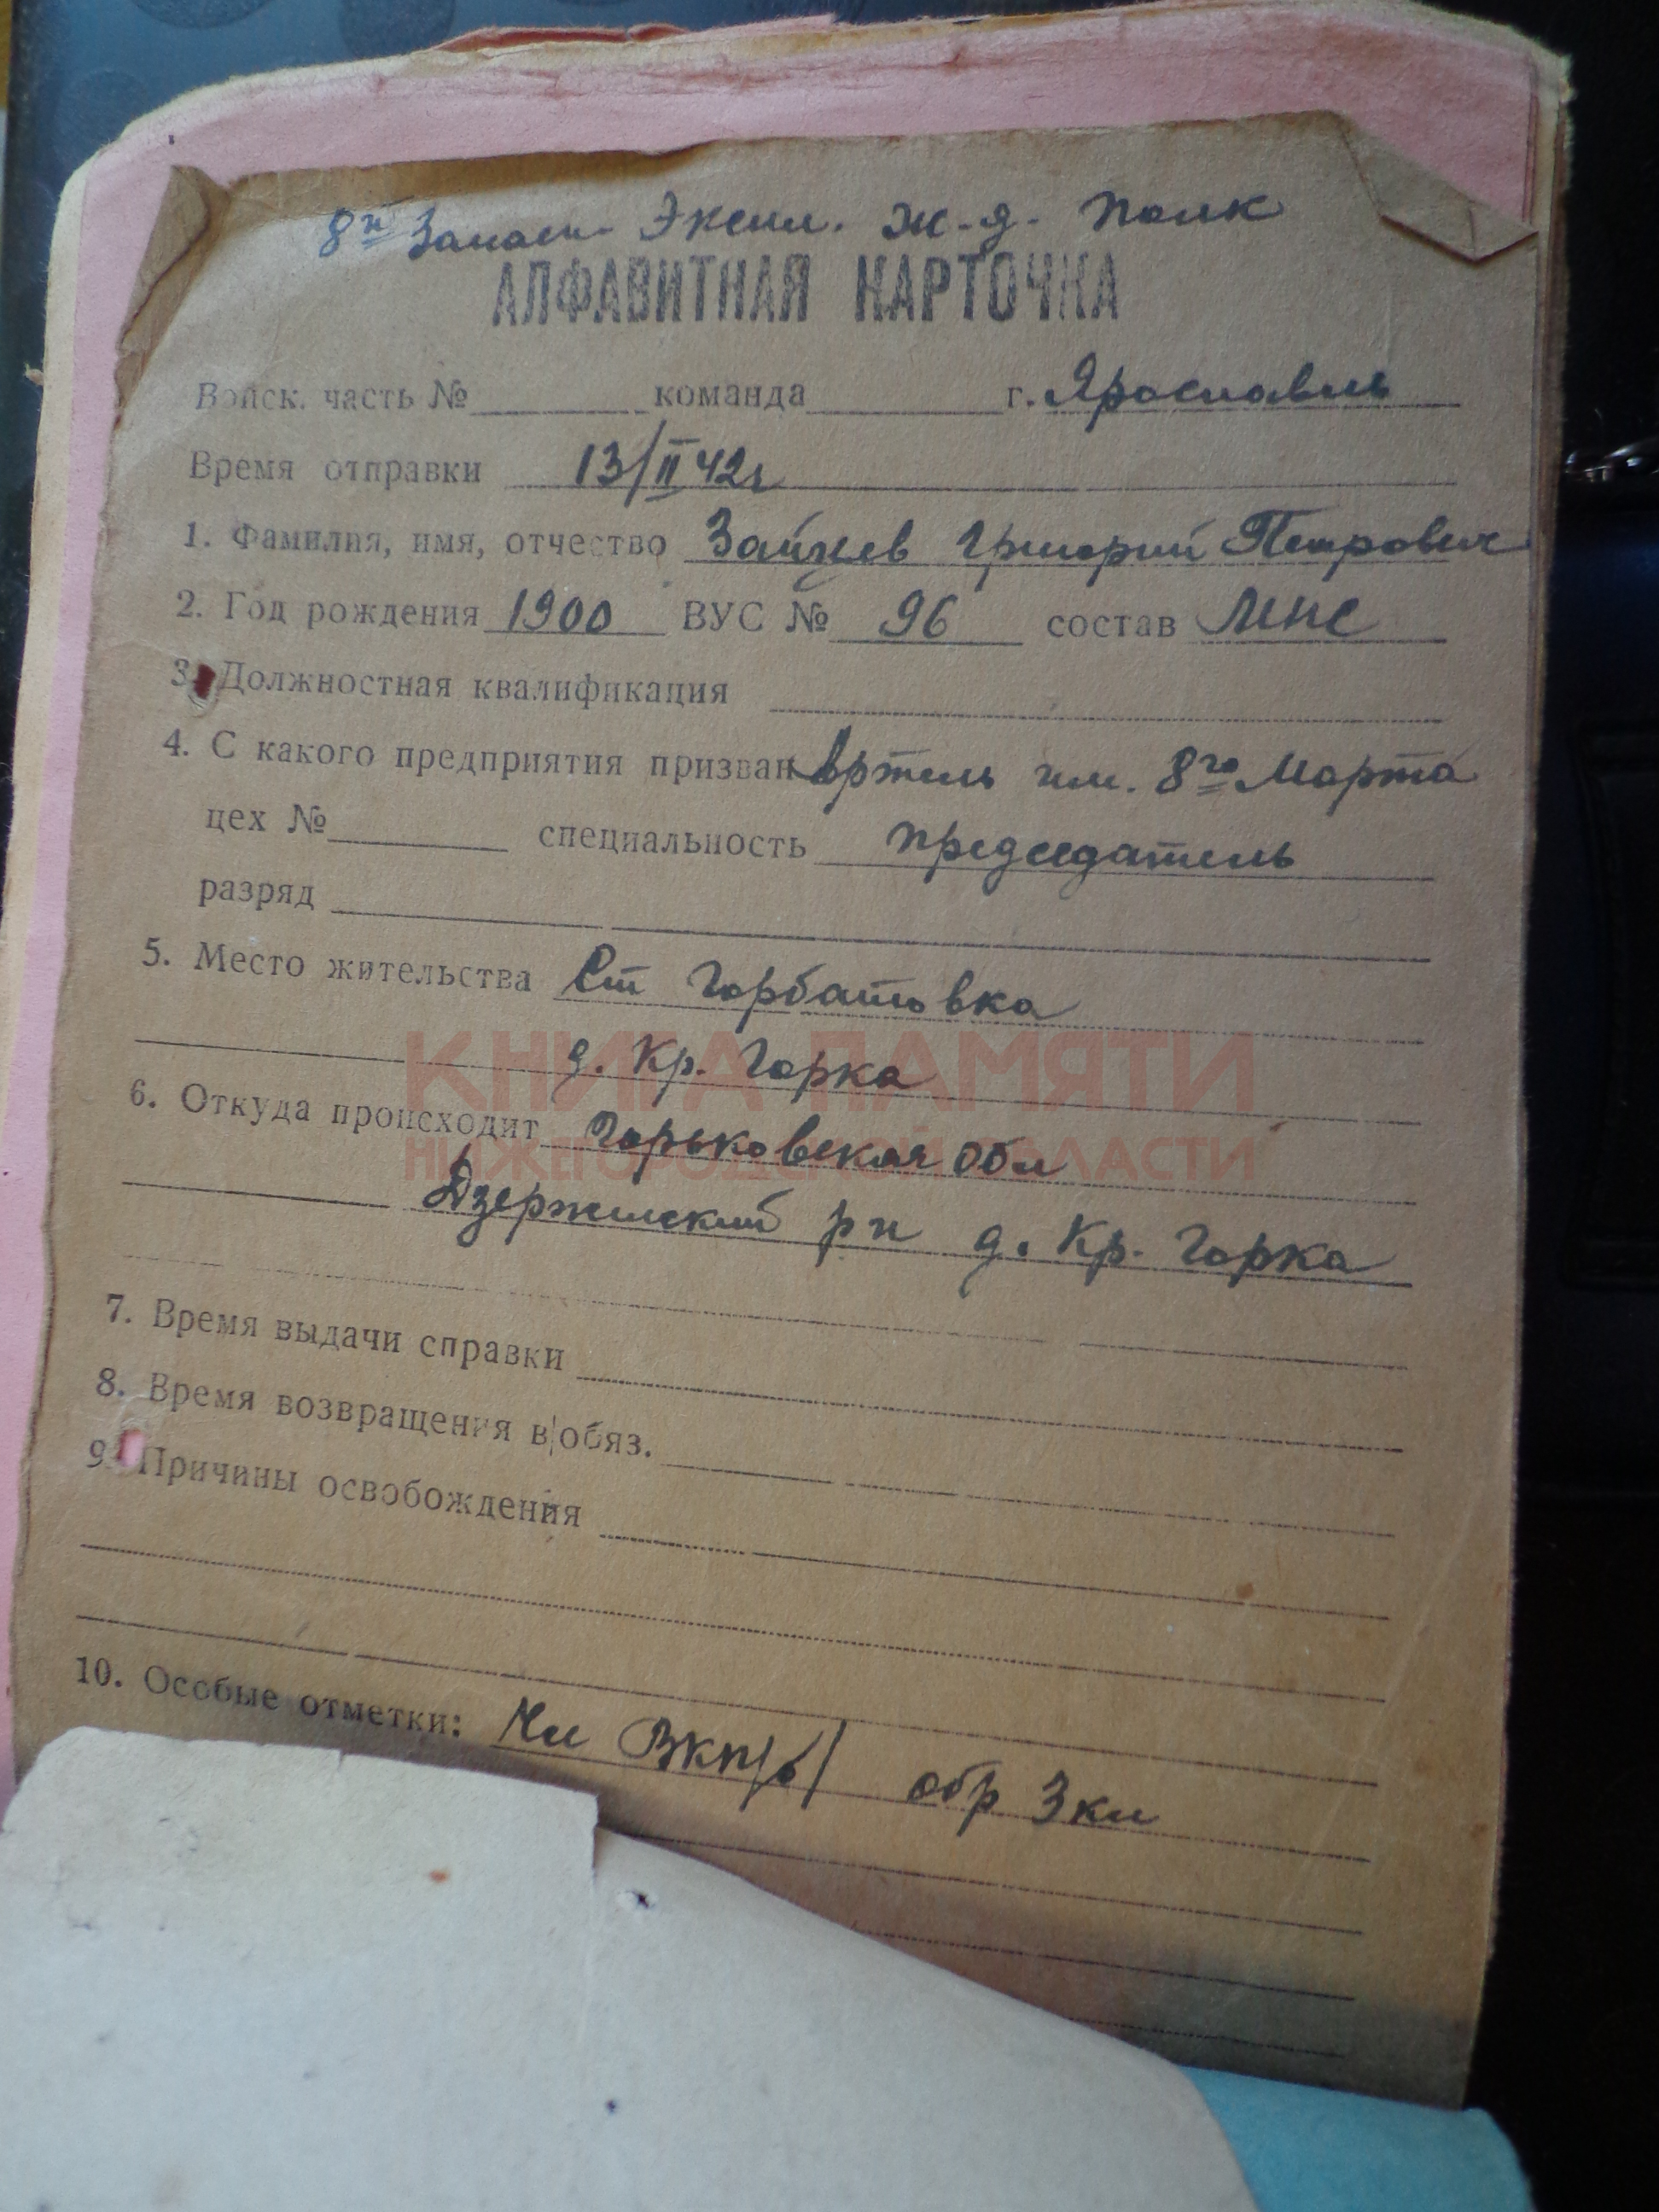 8й Запасн. Экспл. ж-д. полк
АЛФАВИТНАЯ КАРТОЧКА
Войск. часть № команда г. Ярославль
Время отправки 13/II 42г
1. Фамилия, имя, отчество Зайцев Григорий Петрович
2. Год рождения 1900 ВУС № 96 состав МНС
3. Должностная квалификация
4. С какого предприятия призван Артель им. 8го Марта
цех № специальность председатель
разряд
5. Место жительства Ст Горбатовка
д. Кр. Горка
КНИГА ПАМЯТИ
6. Откуда происходит Горьковская обл
НИЖЕГОРОДСКОЙ ОБЛАСТИ
Дзержинский рн д. Кр. Горка
7. Время выдачи справки
8. Время возвращения в/обяз.
9. Причины освобождения
10. Особые отметки: Чл ВКП/б/ обр 3 кл